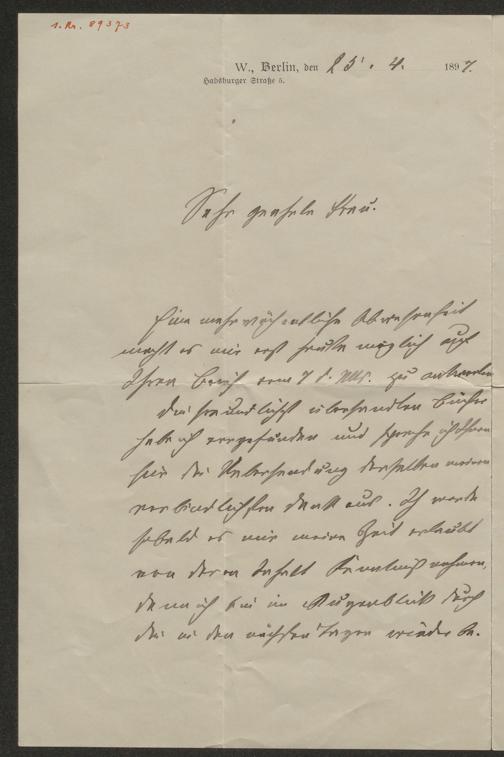 I. N. 89373
W., Berlin, den 25. 4. 1897.
Habsburger Straße 5.
Sehr geehrte Frau.
Eine mehrwöchentliche Abwesenheit
macht es mir erst heute möglich auf
Ihren Brief vom 7 d. Mts. zu antworten
Die freundlichst übersandten Bücher
habe ich vorgefunden und spreche ich Ihnen
für die Uebersendung derselben meinen
verbindlichsten Dank aus. Ich werde
sobald es mir meine Zeit erlaubt
von deren Inhalt Kenntniß nehmen,
denn ich bin im Augenblick durch
die in den nächsten Tagen wieder be-